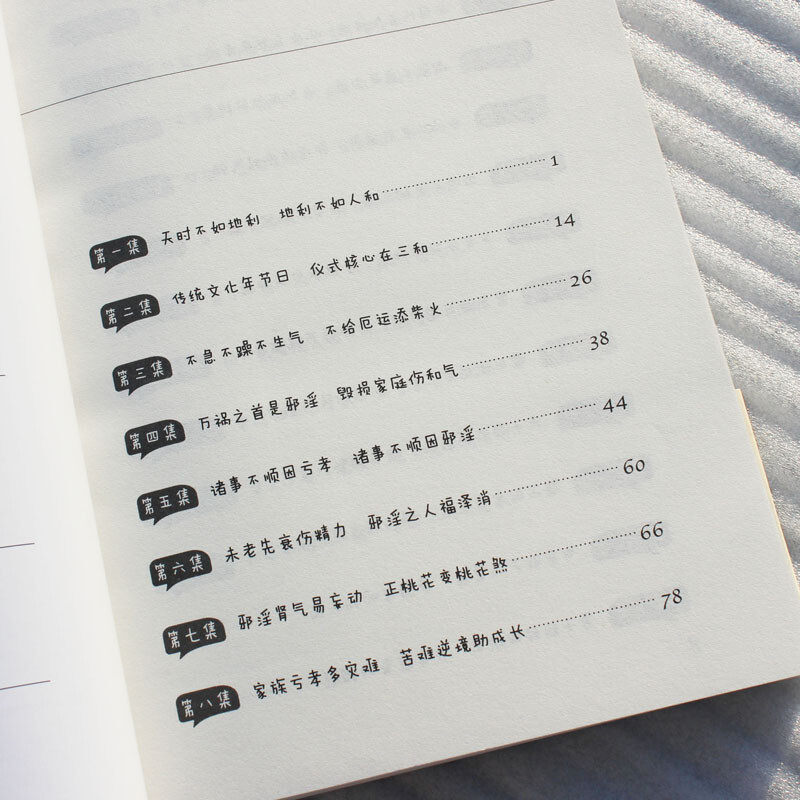 第一集 天时不如地利 地利不如人和 1
第二集 传统文化年节日 仪式核心在三和 14
第三集 不急不躁不生气 不给厄运添柴火 26
第四集 万祸之首是邪淫 毁损家庭伤和气 38
第五集 诸事不顺因亏孝 诸事不顺因邪淫 44
第六集 未老先衰伤精力 邪淫之人福泽消 60
第七集 邪淫肾气易妄动 正桃花变桃花煞 66
第八集 家族亏孝多灾难 苦难逆境助成长 78